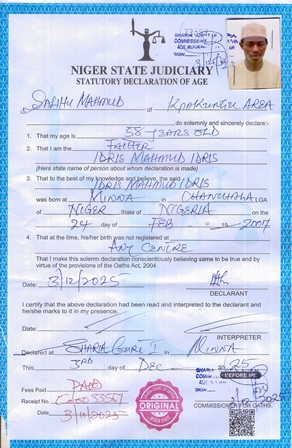 NIGER STATE JUDICIARY
STATUTORY DECLARATION OF AGE
I SALIHU MAHMUD of KPAKUNGU AREA
do solemnly and sincerely declare:-
1. That my age is 58 YEARS OLD
2. That I am the FATHER
IDRIS MAHMUD IDRIS
(Here state name of person about whom declaration is made)
3. That to the best of my knowledge and believe, the said
IDRIS MAHMUD IDRIS
was born at MINNA in CHANCHAGA LGA
of NIGER State of NIGERIA on the
24 day of FEB 2007
4. That at the time, his/her birth was not registered at
ANY CENTRE
That I make this solemn declaration conscientiously believing same to be true and by
virtue of the provisions of the Oaths Act, 2004
Date: 3/12/2025
DECLARANT
I certify that the above declaration had been read and interpreted to the declarant and
he/she marks to it in my presence.
Date:
INTERPRETER
Declared at SHARIA COURT I MINNA
This 3RD day of DEC 2025
BEFORE ME
Fees Paid PAID
Receipt No.
3/12/2025
ORIGINAL
COMMISSIONER FOR OATHS